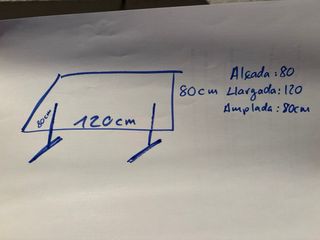 Alçada : 80
80cm Llargada : 120
Amplada : 80cm
80cm
120cm